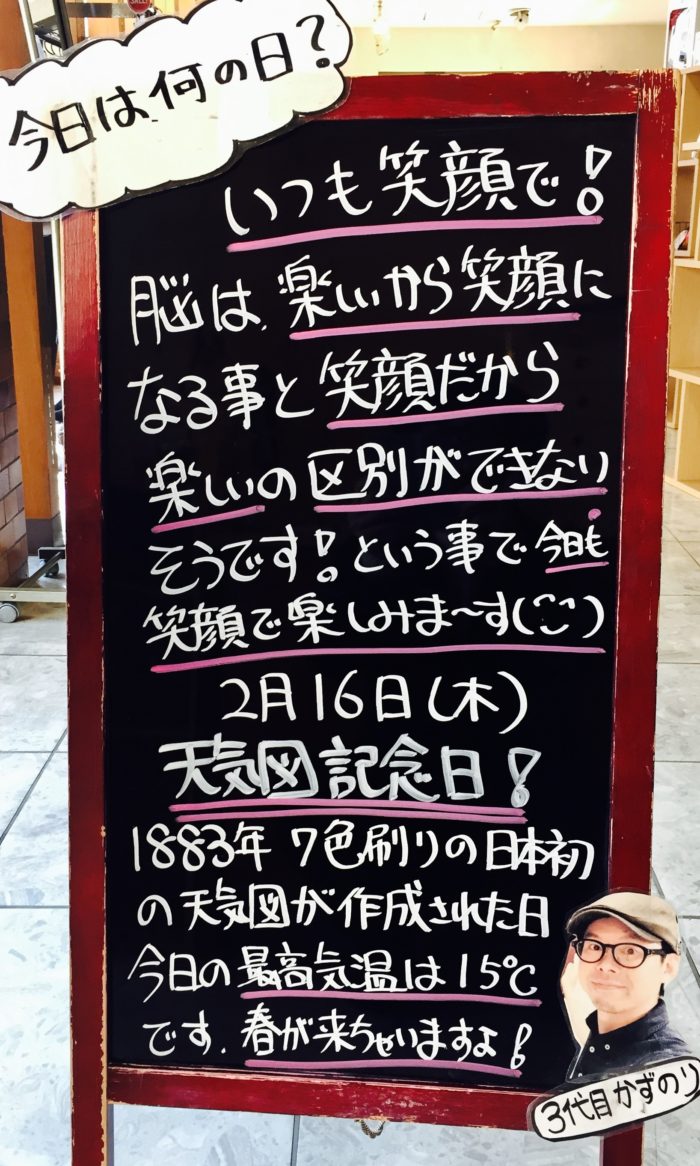 今日は何の日?
いつも笑顔で!
脳は、楽しいから笑顔に
なる事と笑顔だから
楽しいの区別ができない
そうです!という事で今日も
笑顔で楽しみま〜す(^^)
2月16日(木)
天気図記念日!
1883年 7色刷りの日本初
の天気図が作成された日
今日の最高気温は15℃
です、春が来ちゃいますよ!
3代目かずのり